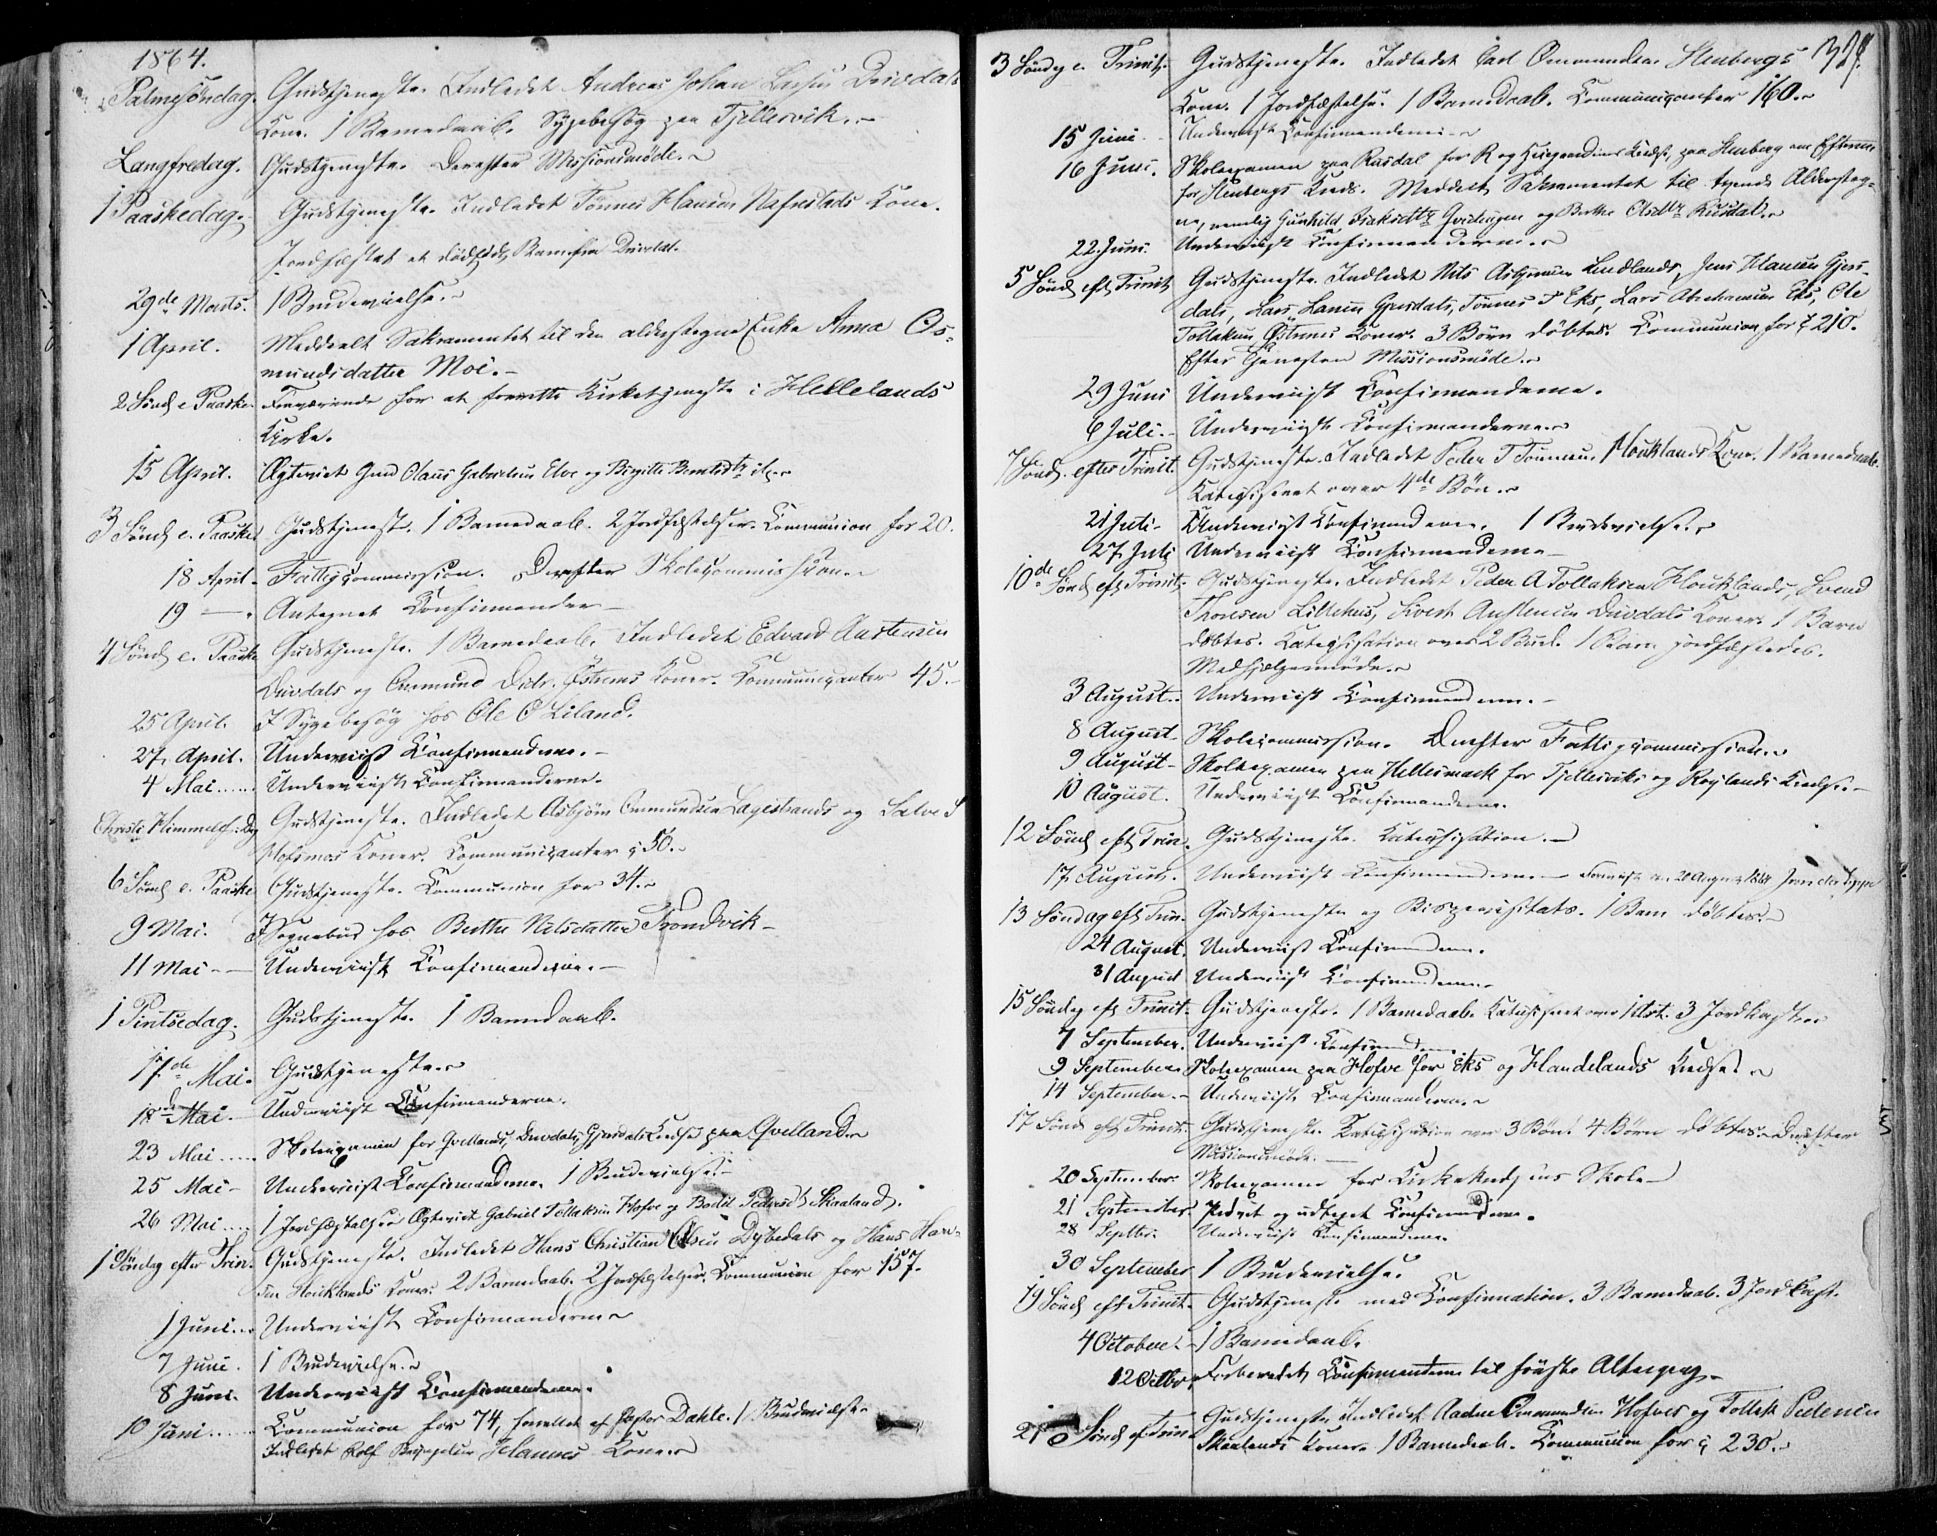 1864.
Palmesøndag. Gudstjeneste. Indledet Andreas Johan Duvdals
Kone. 1 Barnedaab. Sygebesøg paa Fjellesvik.
Langfredag. Gudstjeneste. Derefter Missionsmøde.
1 Paaskedag. Gudstjeneste. Indledet Tønnes Hansen Kone.
Jordfæstet et dødfødt Barn fra
29de Marts. 1 Brudevielse.
1 April. Meddeelt Sakramentet til den alderstegne Enke Anna Os-
mundsdatter Moi.
2 Sønd. e. Paaske. Fraværende for at forrette Kirketjeneste i Hellelands
Kirke.
15 April. Ægteviet Olaus Gabrielsen og Birgitte
3 Sønd. e. Paaske Gudstjeneste. 1 Barnedaab. 2 Jordfæstelser. Communion for 20.
18 April. Fattigcommission. Derefter Skolecommission.
19 — Antegnet Confirmander
4 Sønd. e. Paaske Gudstjeneste. 1 Barnedaab. Indledet Edvard Austensen
Duvdals og Omund Østrems Koner. Communicanter 45.
25 April. I Sygebesøg hos Ole O Liland.
27 April. Underviist Confirmanderne.
4 Mai Underviist Confirmanderne.
Christi Himmelf: Dag Gudstjeneste. Indledet Asbjørn Ommundsen Lagestrands og Salve S
Koner. Communicanter 50.
6 Sønd. e. Paaske Gudstjeneste. Communion for 34.
9 Mai. I Sognebud hos Berthe Nilsdatter Trondvik
11 Mai Underviist Confirmanderne.
1 Pintsedag. Gudstjeneste. 1 Barnedaab.
17de Mai. Gudstjeneste.
18de Mai. Underviist Confirmanderne.
23 Mai Skoleexamen for Qvellands, Duvdals, Gjersdals Kreds paa Qvelland.
25 Mai Underviist Confirmanderne. 1 Brudevielse.
26 Mai 1 Jordfæstelse. Ægteviet Gabriel Tollaksen Hofve og Bodil Skaaland.
1 Søndag efter Trin. Gudstjeneste. Indledet Hans Christian Olsen Dybedals og Hans Han-
sen Houklands Koner. 2 Barnedaab. 2 Jordfæstelser. Communion for 157.
1 Juni. Underviist Confirmanderne
7 Juni. 1 Brudevielse.
8 Juni. Underviist Confirmanderne.
10 Juni Communion for 74, forrettet af Pastor Dahle. 1 Brudevielse.
Indledet Rolf Kone.
328.
3 Søndag e. Trinit. Gudstjeneste. Indledet Ommundsen Stenbergs
Kone. 1 Jordfæstelse. 1 Barnedaab. Communicanter 160.
15 Juni Underviist Confirmanderne.
16 Juni. Skoleexamen paa Rusdal for Kreds, paa Stenberg om Efterm.
for Stenbergs Kreds. Meddeelt Sakramentet til tvende Aldersteg-
ne, nemlig Gunhild og Berthe Rusdal.
22 Juni. Underviist Confirmanderne.
5 Sønd. eft. Trinit Gudstjeneste. Indledet Nils Lindlands, Jens Hansen Gjers-
dals, Lars Gjersdals, Tønnes T Eks, Lars Abrahamsen Eks, Ole
Tollaksen Østrems Koner. 3 Børn døbtes. Communion for 210.
Efter Tjenesten Missionsmøde.
29 Juni Underviist Confirmanderne.
6 Juli. Underviist Confirmanderne.
7 Sønd. efter Trinit. Gudstjeneste. Indledet Peder T Tønnesen Houklands Kone. 1 Barnedaab.
Katechiseret over 4de Bøn.
21 Juli Underviist Confirmanderne. 1 Brudevielse.
27 Juli Underviist Confirmanderne
10de Sønd. eft. Trinit. Gudstjeneste. Indledet Peder A Tollaksen Houklands, Svend
Thorsen Lillehus, Sivert Austensen Duvdals Koner. 1 Barn
døbtes. Katechisation over 2 Bud. 1 Barn jordfæstedes.
Medhjælpermøde.
3 August. Underviist Confirmanderne.
8 August. Skolecommission. Derefter Fattigcommission.
9 August Skoleexamen paa Hellesmark for Fjellesviks og Røylands Kreds.
10 August. Underviist Confirmanderne.
12 Sønd. eft. Trin. Gudstjeneste. Katechisation.
17 August. Underviist Confirmanderne. 20 August 1864
13 Søndag eft. Trin. Gudstjeneste og Bispevisitats. 1 Barn døbtes.
24 August. Underviist Confirmanderne.
31 August Underviist Confirmanderne.
15 Søndag eft. Trinit. Gudstjeneste. 1 Barnedaab. Katechiseret over 1 Art. 3 Jordkastelser
7 September. Underviist Confirmanderne
9 September. Skoleexamen paa Hofve for Eks og Handelands Kreds.
14 September. Underviist Confirmanderne.
17 Sønd. eft. Trinit. Gudstjeneste. Katechisation over 3 Bøn. 4 Børn døbtes. Derefter
Missionsmøde.
20 September. Skoleexamen for Kirkekredsens Skole
21 September. Prøvet og udtaget Confirmanderne.
28 Septbr. Underviist Confirmanderne.
30 September 1 Brudevielse.
19 Sønd. eft. Trinit. Gudstjeneste med Confirmation. 3 Barnedaab. 3 Jordkast.
4 October. 1 Barnedaab.
12 Octbr. Forberedet Confirmanderne til første Altergang.
21 Sønd. ef. Trin. Gudstjeneste. Indledet Aadne Ommundsen Hofves og Tollak Pedersen
Skaalands Koner. 1 Barnedaab. Communion for 230.